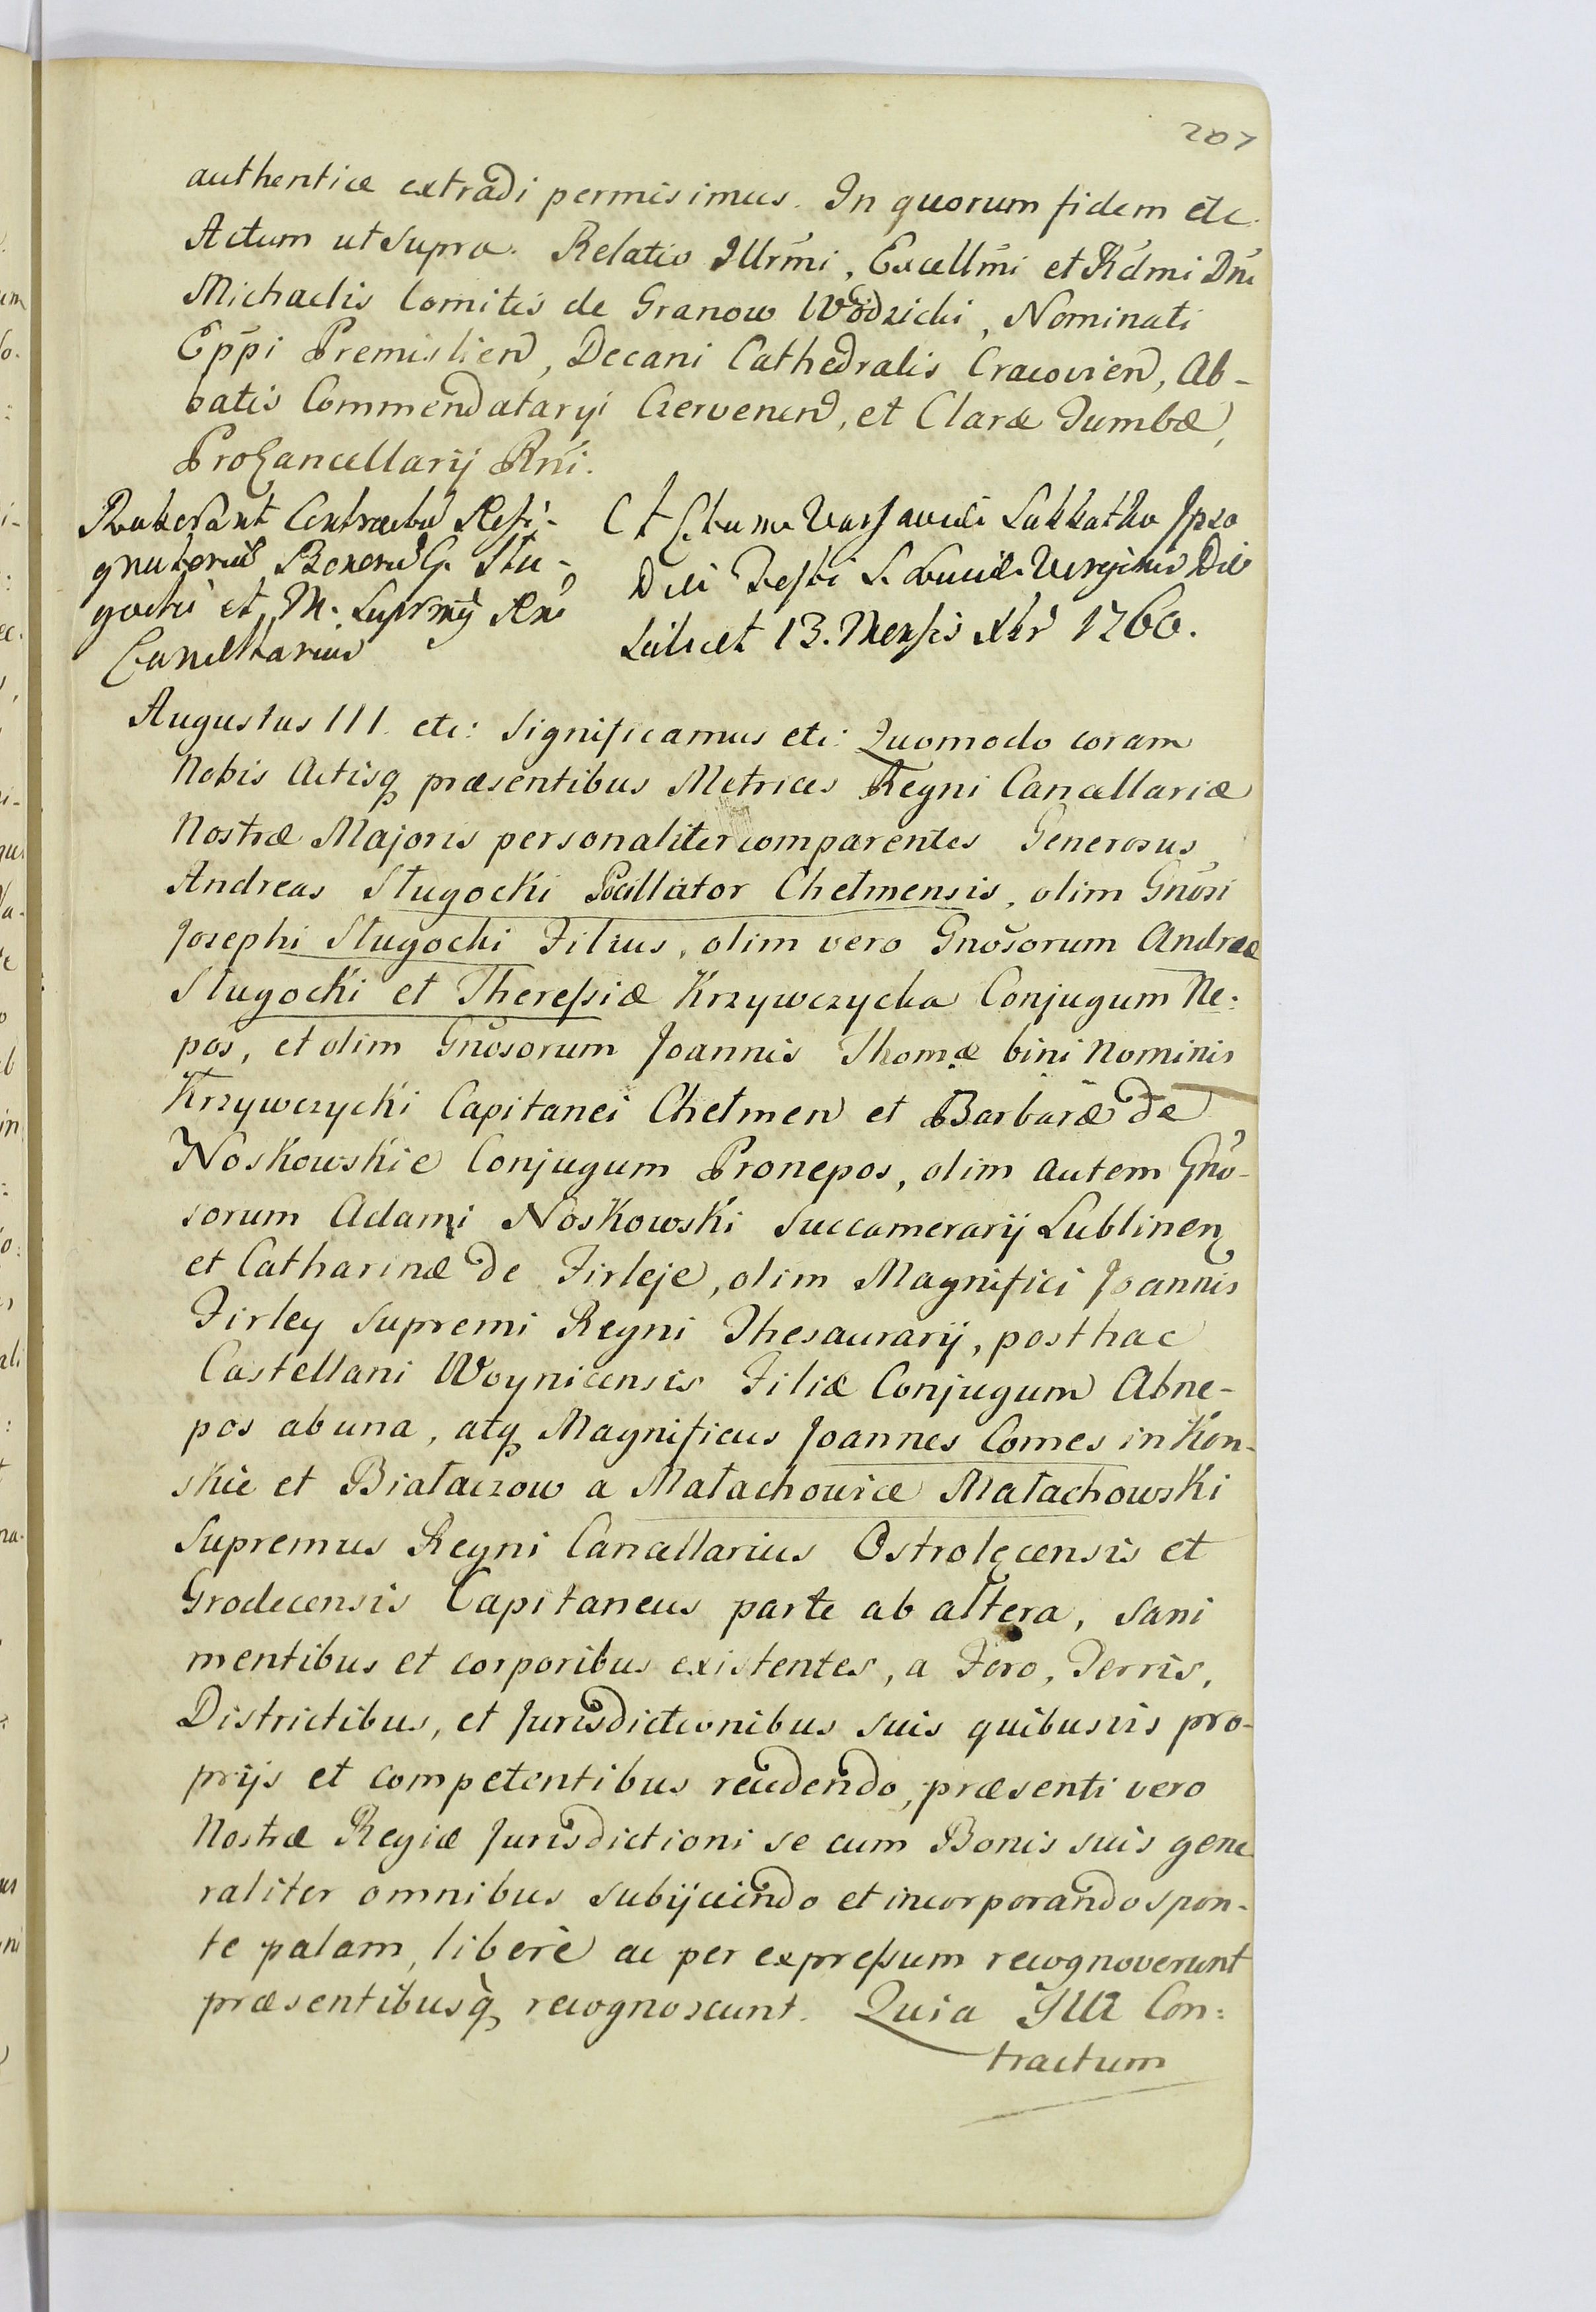 207
authenticæ extradi permisimus. In quorum fidem etc.
Actum ut Supra. Relatio Illrm̃i, Excellm̃i et Rdmi Dni
Michaelis Comitis de Granow Wodzicki, Nominati
Eppi Premislien, Decani Cathedralis Cracovien, Ab-
batis Commendatarÿ Czervenen, et Claræ Tumbæ,
ProCancellarij Rni.
Roborant Contractus Resi-
gnatorius Bonorũ G. Słu-
gocki et M. Supremj Rni
Cancellarius
Actum Varsaviæ Sabbatho Ipso
Die Festi S. Luciæ Virginis Die
Scilicet 13. Mensis Xbr 1760.
Augustus III. etc: Significamus etc: Quomodo coram
Nobis Actisq præsentibus Metrices Regni Cancellariæ
Nostræ Majoris personaliter comparentes Generosus
Andreas Sługocki Pocillator Chełmensis, olim Gnosi
Josephi Sługocki Filius, olim vero Gnosorum Andreæ
Sługocki et Theresiæ Krzywczycka Conjugum Ne:
pos, et olim Gnosorum Joannis Thomæ bini Nominis
Krzywczycki Capitanei Chełmen et Barbaræ de
Noskowskie Conjugum Pronepos, olim autem Gno-
sorum Adami Noskowski Succamerarij Lublinen
et Catharinæ de Firleje, olim Magnifici Joannis
Firley Supremi Regni Thesaurarij, posthac
Castellani Woynicensis Filiæ Conjugum Abne-
pos ab una, atq Magnificus Joannes Comes in Kon-
skie et Białaczow a Małachowice Małachowski
Supremus Regni Cancellarius Ostrolęcensis et
Grodecensis Capitaneus parte ab altera, sani
mentibus et corporibus existentes, a Foro, Terris,
Districtibus, et Jurisdictionibus suis quibusvis pro-
prijs et competentibus recedendo, præsenti vero
Nostræ Regiæ Jurisdictioni se cum Bonis suis gene
raliter omnibus subijciendo et incorporando spon-
te palam, liberè ac per expressum recognoverunt
præsentibusq recognoscunt. Quia Illi Con:
tractum